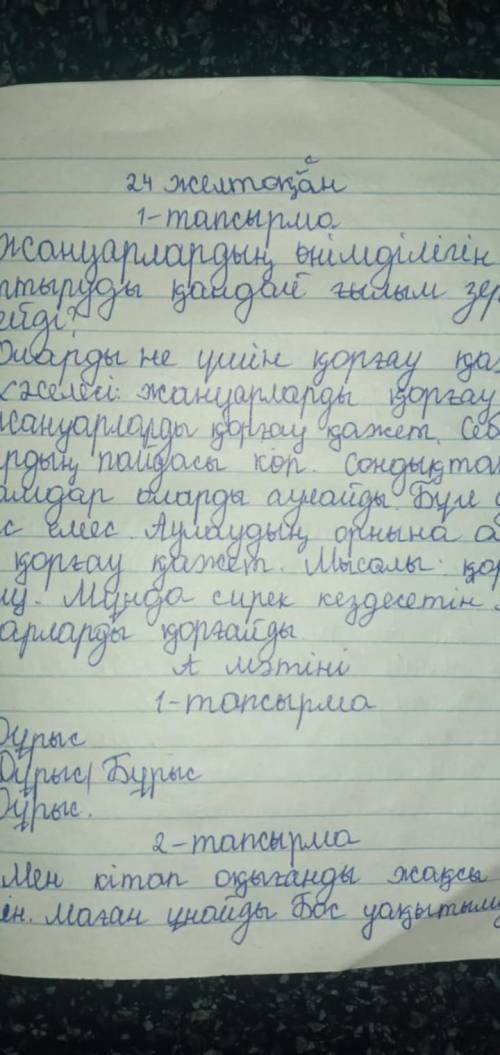 24 желтоқсан
1-тапсырма
Жануарлардың өнімділігін
птыруды қандай ғылым зер
ейді?
Оларды не үшін қорғау қа
жүйелесі: жануарларды қорғау
жануарларды қорғау қажет. Себ
ардың пайдасы көп. Сондықтан
амдар оларды аулайды. Бұл
с емес. Аулаудың орнына а
қорғау қажет. Мысалы: қор
лу. Мұнда сирек кездесетін
арларды қорғайды
А мәтіні
1-тапсырма
Дұрыс
Дұрыс/Бұрыс
Дұрыс.
2-тапсырма
Мен кітап оқығанды жақсы
ін. маған ұнайды Бос уақытым